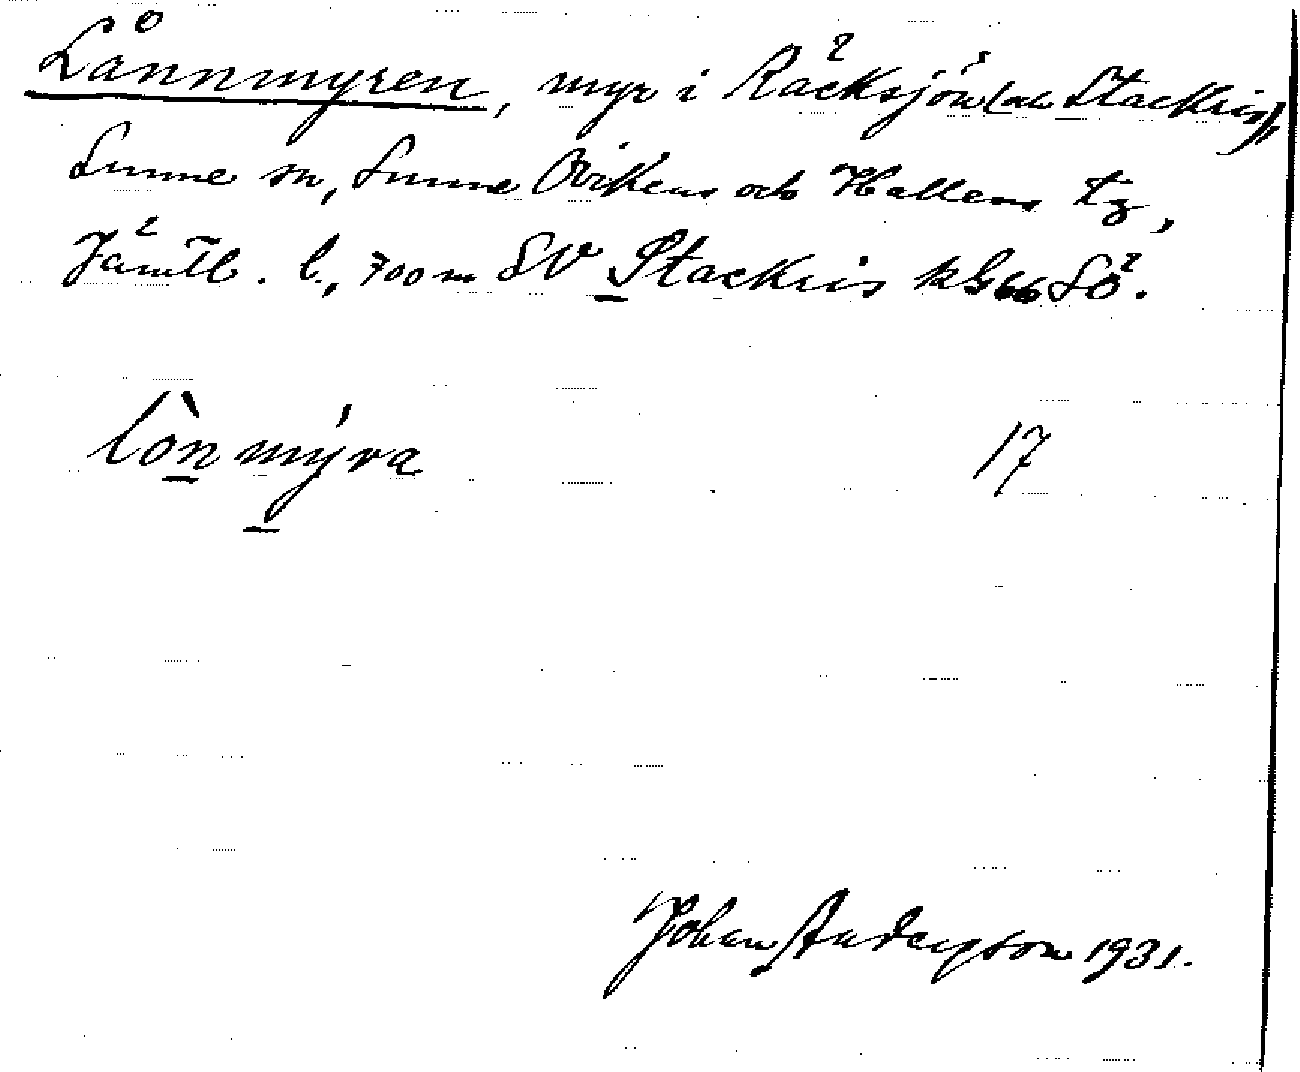 Lånnmyren, myr i Räcksjön (och Stackris),
Sunne sn, Sunne Ovikens och Hallens tg,
Jämtl. l., 700 m SV Stackris kbl 66 SÖ.
lònmýra 17
Johan Anderson 1931.